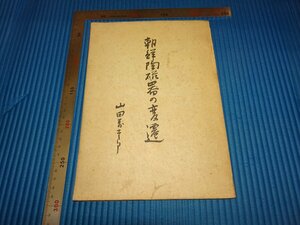 朝鮮陶磁器の変遷
山田万吉郎